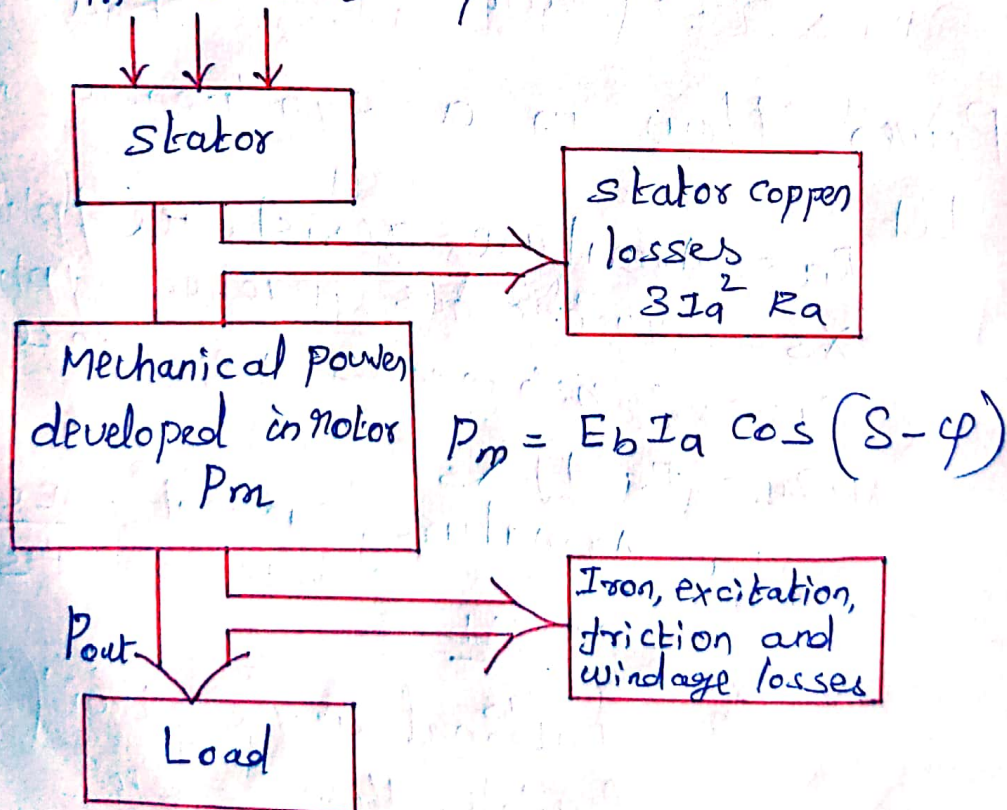 Stator
Stator copper
losses
3Ia² Ra
Mechanical power
developed in rotor
Pm
Pm = Eb Ia Cos (δ-φ)
Iron, excitation,
friction and
windage losses
Pout
Load